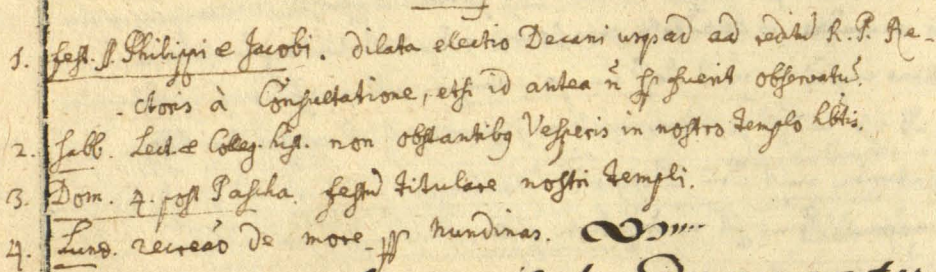 1. Fest. SS. Philippi & Jacobi. dilata electio Decani usq ad ad reditũ R. P. Re-
ctoris à Consultatione, etsi id antea ñ fuerit observatũ.
2. Sabb. Lect. & Colleg. hist. non obstantibq Vesperis in nostro templo hbtis.
3. Dom. 4. post Pascha. festũ titulare nostri templi.
4. Lunæ. recreaõ de more nundinas.